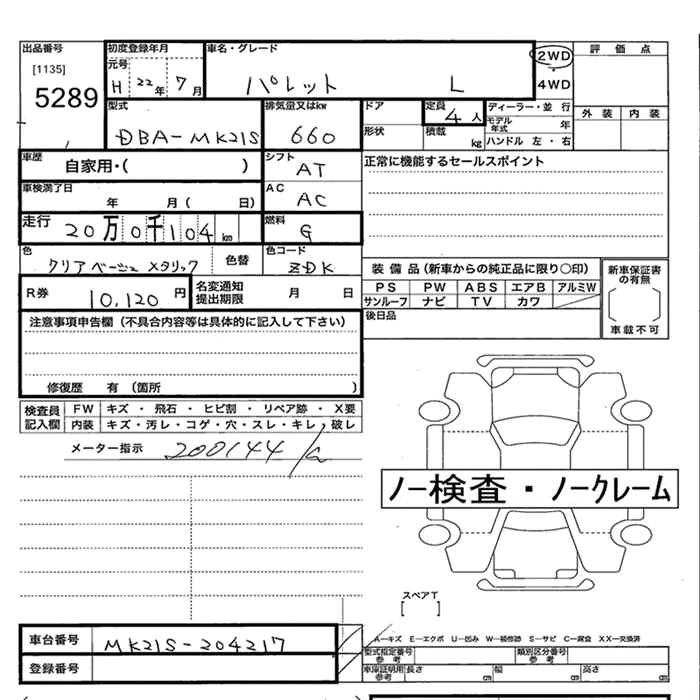 出品番号 初度登録年月 車名・グレード 2WD 評価点
[1135] 元号
5289 H 22年 7月 パレット L 4WD
型式 排気量又はkw ドア 定員 4人 ディーラー・並行 外装 内装
DBA-MK21S 660 形状 積載 kg モデル年式 年
ハンドル 左・右
車歴 自家用・( ) シフト AT 正常に機能するセールスポイント
車検満了日 年 月( 日) AC AC
走行 20万0千104km 燃料 G
色 クリアベージュメタリック 色替 色コード ZDK
装備品(新車からの純正品に限り○印) 新車保証書の有無
R券 10,120円 名変通知提出期限 月 日 PS PW ABS エアB アルミW
サンルーフ ナビ TV カワ
車載不可
注意事項申告欄(不具合内容等は具体的に記入して下さい) 後日品
修復歴 有(箇所 )
検査員記入欄 FW キズ・飛石・ヒビ割・リペア跡・X要
内装 キズ・汚レ・コゲ・穴・スレ・キレ・破レ
メーター指示 200144
ノー検査・ノークレーム
スペアT
[ ]
車台番号 MK21S-204217 A―キズ E―エクボ U―凹み W―補修跡 S―サビ C―腐食 XX―交換済
型式指定番号 参考 類別区分番号 参考
登録番号 車庫証明用 参考 長さ cm 幅 cm 高さ cm